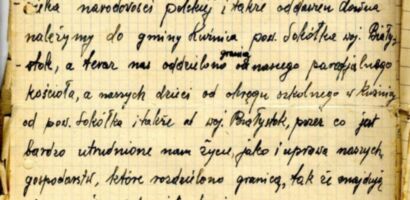 ska narodowości polskiej i także oddawien dawna
należymy do gminy Kuźnica pow. Sokółka woj. Biały-
stok, a teraz nas oddzielono granicą od naszego parafjalnego
kościoła, a naszych dzieci od okręgu szkolnego w Kuźnicy
od pow. Sokółka i także od woj. Białystok, przez co jest
bardzo utrudnione nam życie, jako i uprawa naszych
gospodarstw, które rozdzielono granicą, tak że znajdują